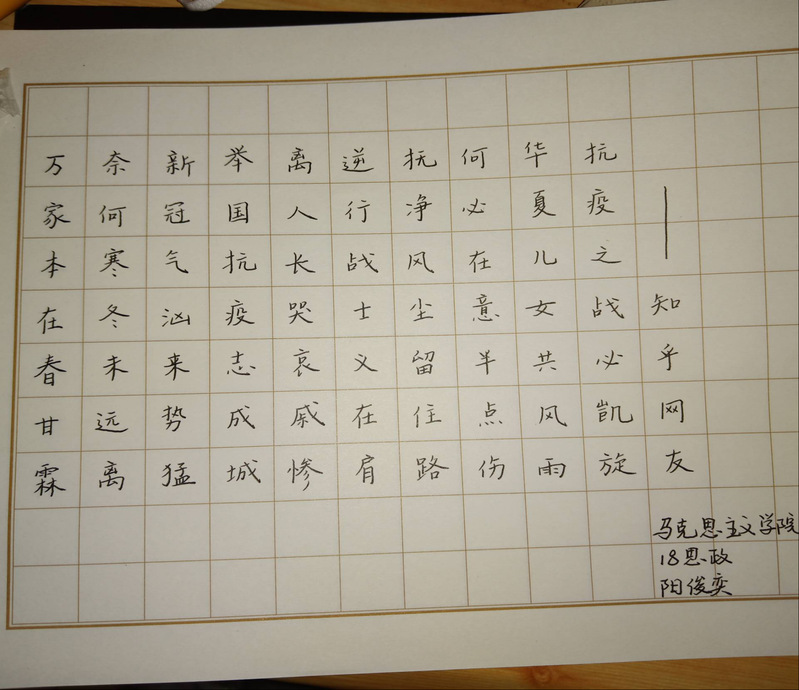 万家本在春甘霖
奈何寒冬未远离
新冠气汹来势猛
举国抗疫志成城
离人长哭哀戚惨
逆行战士义在肩
抚净风尘留住路
何必在意半点伤
华夏儿女共风雨
抗疫之战必凯旋
——知乎网友
马克思主义学院
18思政
阳俊奕